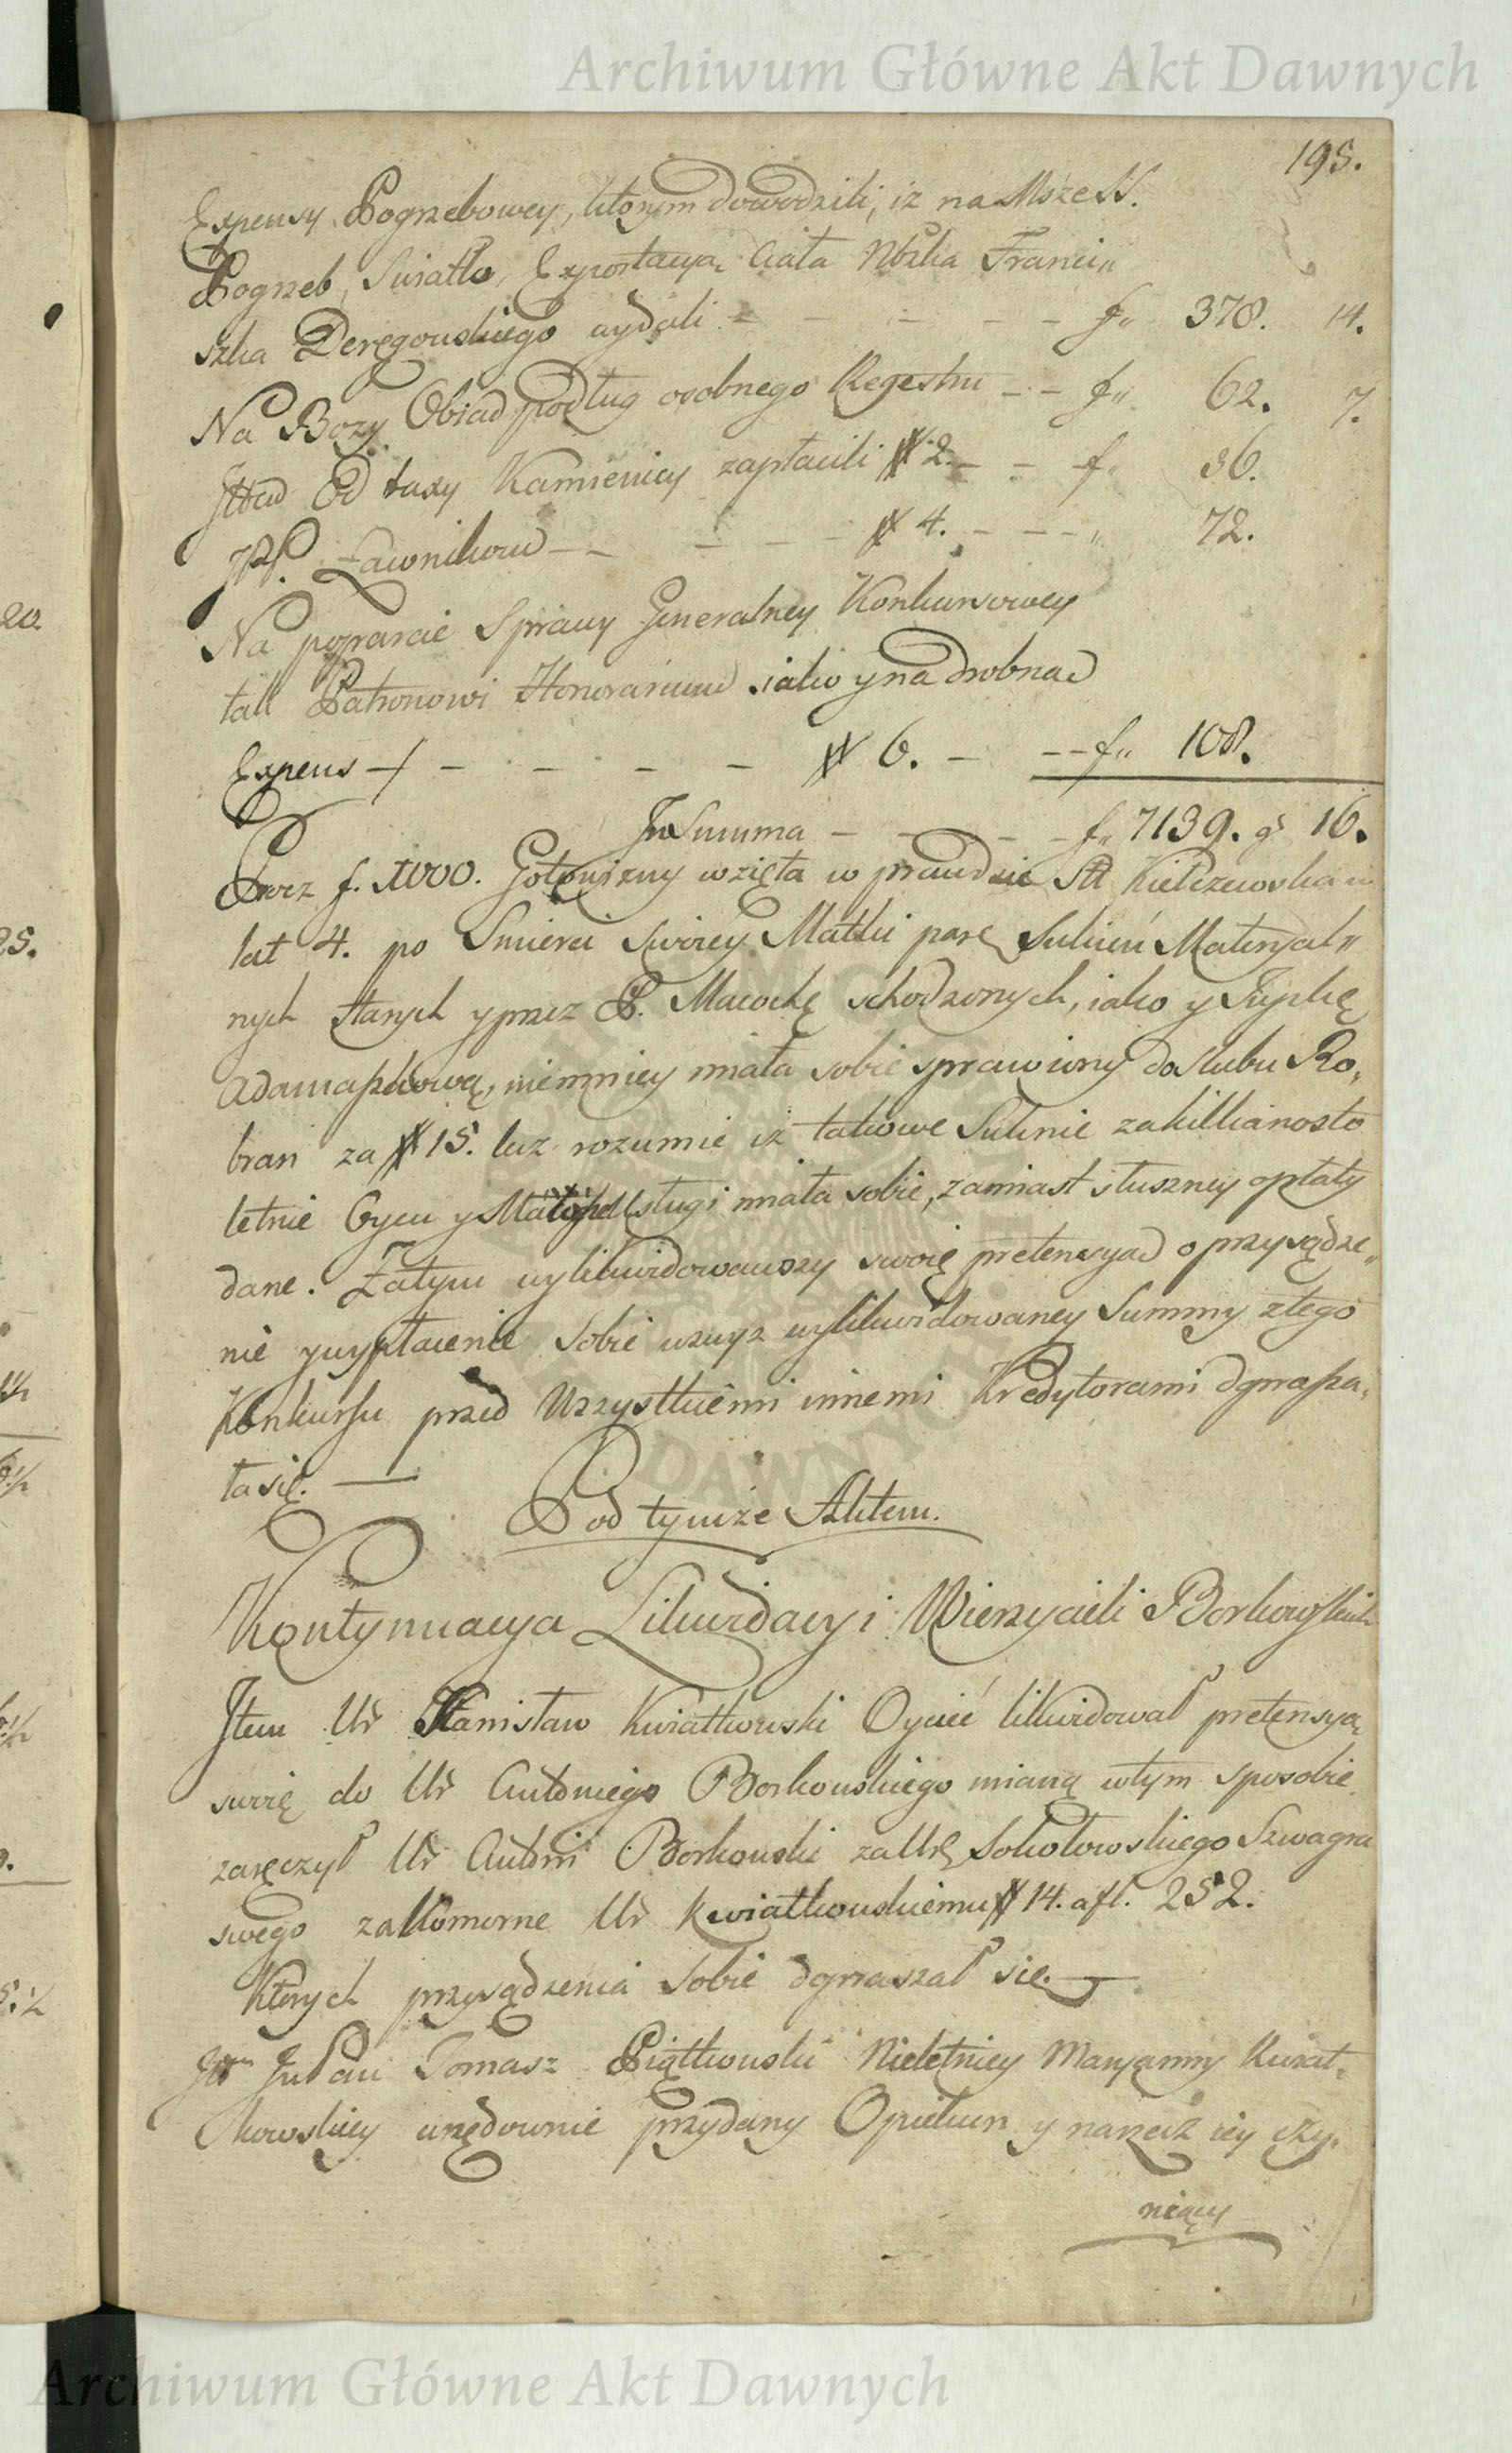 Archiwum Główne Akt Dawnych
195.
Expensy Pogrzebowey, którym dowodzili, iż na Msze SS.
Pogrzeb, Swiatło, Exportacya Ciała Nbszka Franci„
szka Deręgowskiego wydali - - - - - f„ 378. 14.
Na Boży Obiad podług osobnego Regestru - - f„ 62. 7.
Ittad Od taxy Kamienicy zapłacili # 2. - - f„ 36.
JPP. Ławnikow - - - - - # 4. - - - „ 72.
Na poparcie Sprawy Generalney Konkursowey
tak Patronowi Honorarium iako y na drobna
Expens - - - - - # 6. - - - f„ 108.
In Summa - - - - f„ 7139. gr 16.
Procz f. 1000. Gotowizny wzięta w prawdzie Kiełczewska
lat 4. po Smierci swoiey Matki parę Sukień Materyal„
nych starych y przez P. Macochę schodzonych, iako y Jupkę
Adamaszkową, niemniey miała sobie sprawiony do slubu Ro„
bran za # 15. lecz rozumie iż takowe Suknie za killkanosto
letnie Oycu y Usługi miała sobie, zamiast słuszney opłaty
dane. Zatym wylikwidowawszy swoię pretensyą o przysądze„
nie y wypłacenie sobie wzwyz wylikwidowaney Summy z tego
Konkursu przed Wszystkiemi innemi Kredytorami dopraszа„
ła się. —
Pod tymże Aktem.
Kontynuacya Likwidacyi Wierzycieli Borkowskich
Item Ur Stanisław Kwiatkowski Oyciec likwidował pretensyą
swoię do Ur Antoniego Borkowskiego mianą w tym sposobie
zaręczył Ur Antoni Borkowski za Ur Sokołowskiego Szwagra
swego za Komorne Ur Kwiatkowskiemu # 14. a fl. 252.
Których przysądzenia sobie dopraszał się. —
Itm Jn Pan Tomasz Piątkowski Nieletniey Maryanny Kwiat„
kowskiey urzędownie przydany Opiekun y na rzecz iey czy„
niący
20.
25.
9.
Archiwum Główne Akt Dawnych